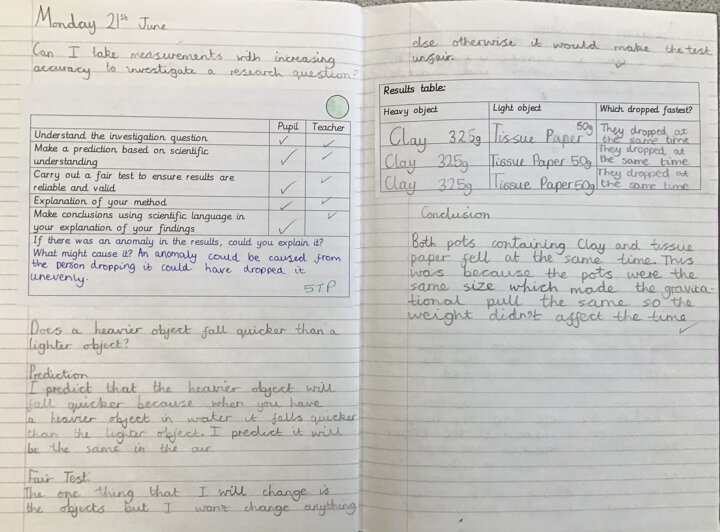 Monday 21st June
Can I take measurements with increasing
accuracy to investigate a research question?
Pupil Teacher
Understand the investigation question ✓
Make a prediction based on scientific
understanding ✓ ✓
Carry out a fair test to ensure results are
reliable and valid ✓ ✓
Explanation of your method ✓ ✓
Make conclusions using scientific language in
your explanation of your findings ✓ ✓
If there was an anomaly in the results, could you explain it?
What might cause it? An anomaly could be caused from
the person dropping it could have dropped it
unevenly.
5TP
Does a heavier object fall quicker than a
lighter object?
Prediction
I predict that the heavier object will
fall quicker because when you have
a heavier object in water it falls quicker
than the lighter object. I predict it will
be the same in the air
Fair Test:
The one thing that I will change is
the objects but I won't change anything
else otherwise it would make the test
unfair.
Results table:
Heavy object Light object Which dropped fastest?
Clay 325g Tissue Paper 50g They dropped at
the same time
Clay 325g Tissue Paper 50g They dropped at
the same time
Clay 325g Tissue Paper 50g They dropped at
the same time
Conclusion
Both pots containing Clay and tissue
paper fell at the same time. This
was because the pots were the
same size which made the gravita-
tional pull the same so the
weight didn't affect the time